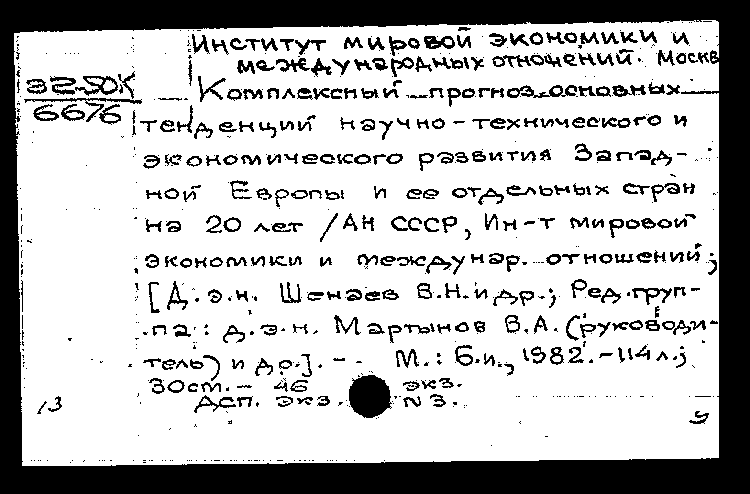 Институт мировой экономики и
международных отношений. Москва
32-50К
6676
Комплексный прогноз основных
тенденций научно-технического и
экономического развития Запад-
ной Европы и ее отдельных стран
на 20 лет /АН СССР, Ин-т мировой
экономики и междунар. отношений;
[Д.э.н. Шенаев В.Н. и др.; Ред. груп-
па: д.э.н. Мартынов В.А. (руководи-
тель) и др.]. -- М.: б.и., 1982.-114л.;
30см.- 46 экз.
Дсп. экз. N3.
13